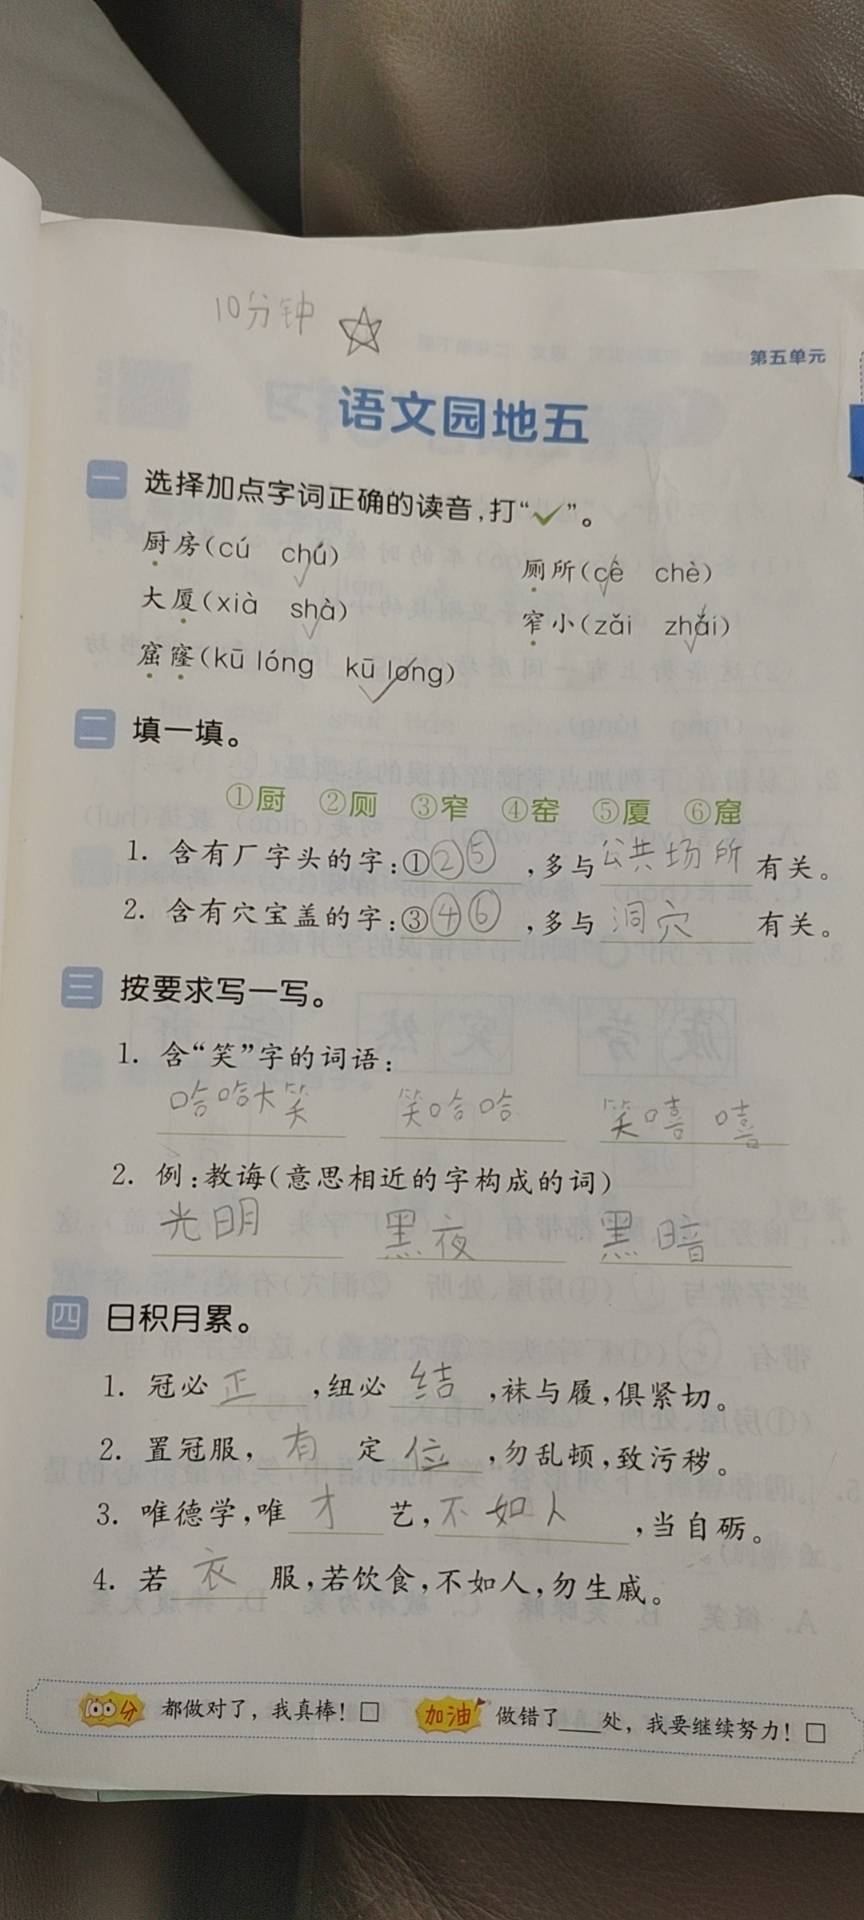 10分钟 ☆
第五单元
语文园地五
一 选择加点字词正确的读音,打“✓”。
厨房(cú chú) 厕所(cè chè)
大厦(xià shà) 窄小(zǎi zhǎi)
窟窿(kū lóng kū long)
二 填一填。
①厨 ②厕 ③窄 ④窑 ⑤厦 ⑥窟
1. 含有厂字头的字:①②⑤,多与公共场所有关。
2. 含有穴宝盖的字:③④⑥,多与洞穴有关。
三 按要求写一写。
1. 含“笑”字的词语:
哈哈大笑 笑哈哈 笑嘻嘻
2. 例:教诲(意思相近的字构成的词)
光明 黑夜 黑暗
四 日积月累。
1. 冠必正,纽必结,袜与履,俱紧切。
2. 置冠服,有定位,勿乱顿,致污秽。
3. 唯德学,唯才艺,不如人,当自砺。
4. 若衣服,若饮食,不如人,勿生戚。
100分 都做对了,我真棒!□ 加油 做错了___处,我要继续努力!□